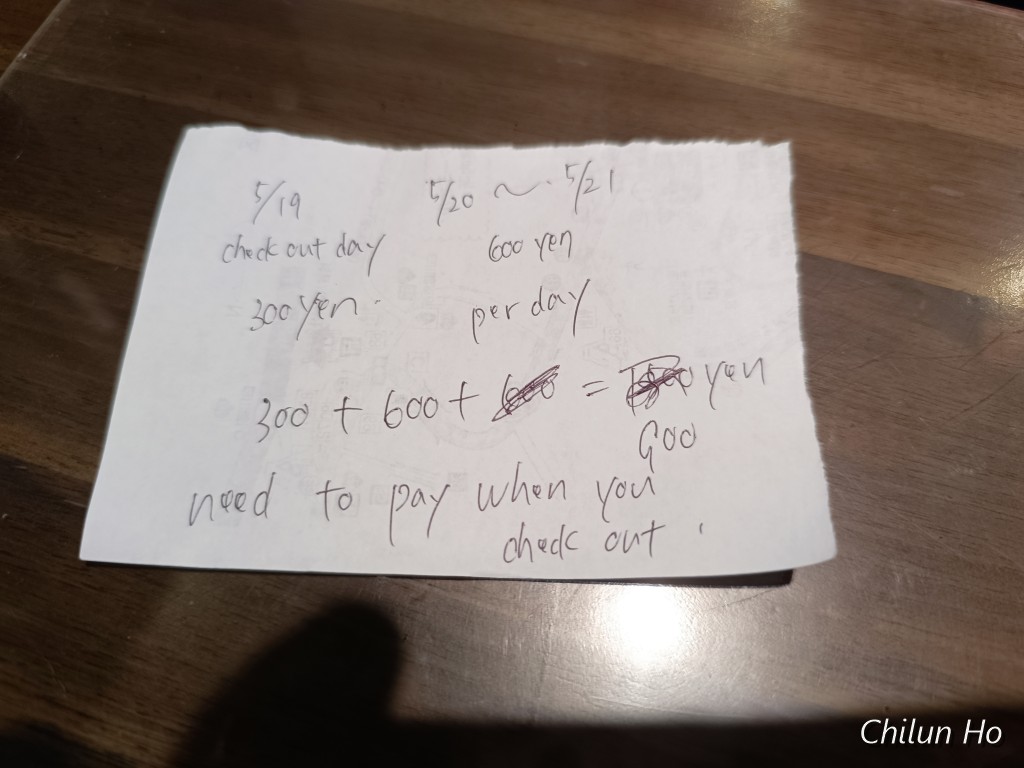 5/19 5/20 ~ 5/21
check out day 600 yen
300 yen. per day
300 + 600 + 600 = 1500 yen
900
need to pay when you
check out.
Chilun Ho